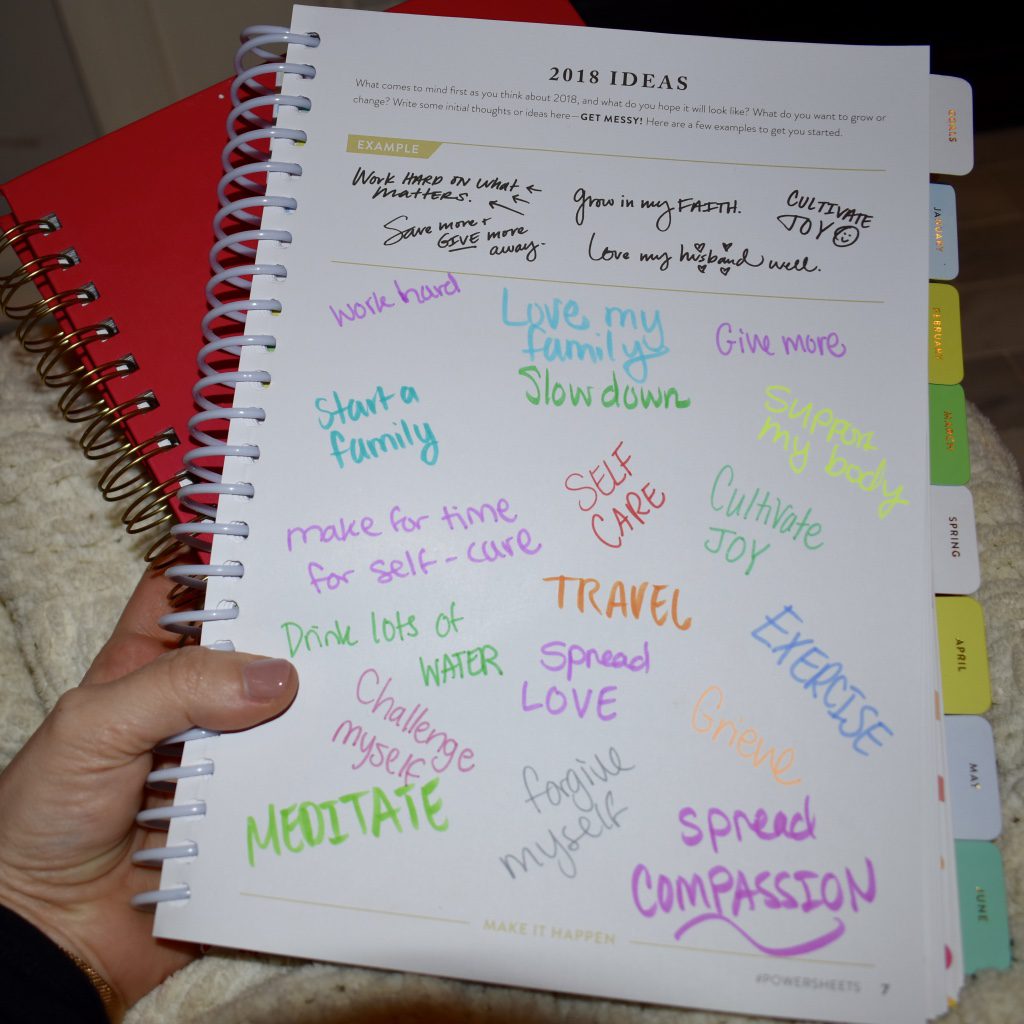 2018 IDEAS
What comes to mind first as you think about 2018, and what do you hope it will look like? What do you want to grow or
change? Write some initial thoughts or ideas here—GET MESSY! Here are a few examples to get you started.
EXAMPLE
Work HARD ON what
matters.
Grow in my FAITH.
CULTIVATE
JOY
Save more +
GIVE more
away.
Love my husband well.
Work hard
Love my
family
Give more
Slow down
Start a
family
Support
my body
SELF
CARE
Cultivate
JOY
make for time
for self-care
TRAVEL
Drink lots of
WATER
Spread
LOVE
EXERCISE
Challenge
myself
Grieve
forgive
myself
MEDITATE
spread
COMPASSION
MAKE IT HAPPEN
#POWERSHEETS 7
GOALS
JANUARY
FEBRUARY
MARCH
SPRING
APRIL
MAY
JUNE